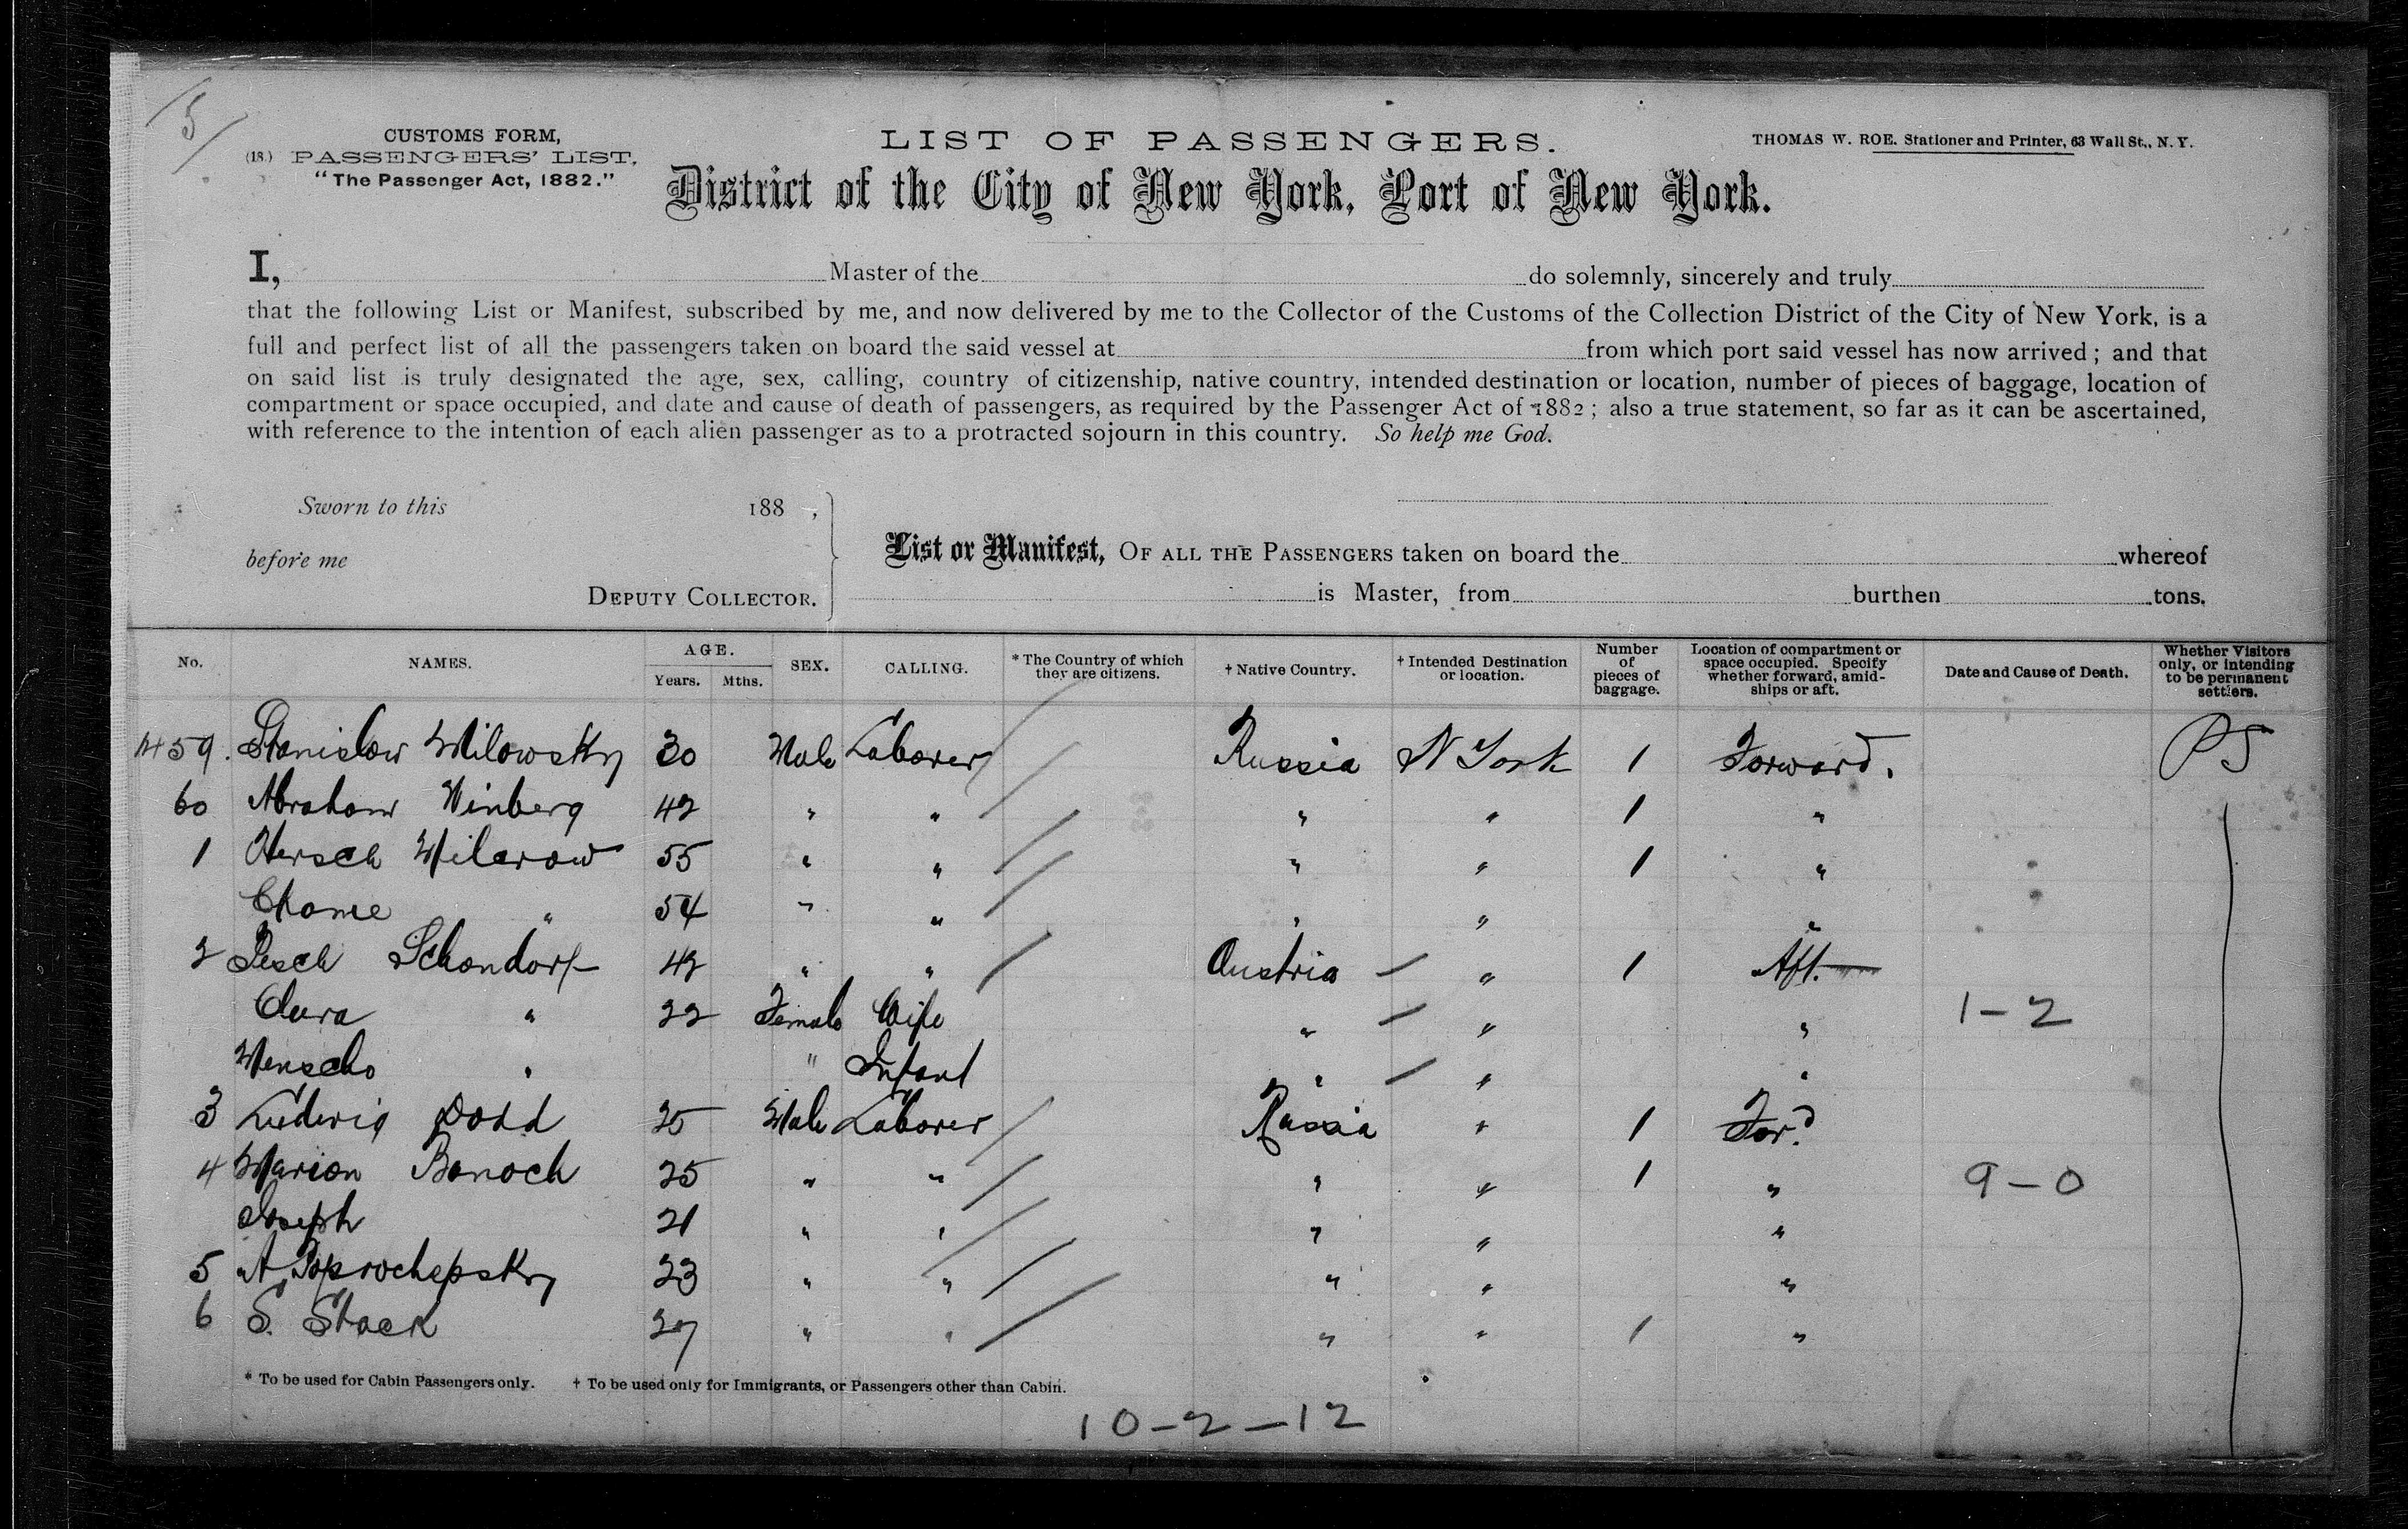 5
CUSTOMS FORM,
(18.) PASSENGERS' LIST.
"The Passenger Act, 1882."
LIST OF PASSENGERS.
THOMAS W. ROE. Stationer and Printer, 63 Wall St., N. Y.
District of the City of New York, Port of New York.
I, Master of the do solemnly, sincerely and truly
that the following List or Manifest, subscribed by me, and now delivered by me to the Collector of the Customs of the Collection District of the City of New York, is a
full and perfect list of all the passengers taken on board the said vessel at from which port said vessel has now arrived ; and that
on said list is truly designated the age, sex, calling, country of citizenship, native country, intended destination or location, number of pieces of baggage, location of
compartment or space occupied, and date and cause of death of passengers, as required by the Passenger Act of 1882 ; also a true statement, so far as it can be ascertained,
with reference to the intention of each alien passenger as to a protracted sojourn in this country. So help me God.
Sworn to this 188 ,
before me
DEPUTY COLLECTOR.
List or Manifest, OF ALL THE PASSENGERS taken on board the whereof
is Master, from burthen tons.
No. NAMES. AGE. Years. Mths. SEX. CALLING. * The Country of which they are citizens. † Native Country. † Intended Destination or location. Number of pieces of baggage. Location of compartment or space occupied. Specify whether forward, amidships or aft. Date and Cause of Death. Whether Visitors only, or intending to be permanent settlers.
1459. Stanislow Milowsky 30 Male Laborer Russia N York 1 Forward. PS
60 Abraham Winberg 42 " " " " 1 "
1 Hersch 55 " " " " 1 "
" 54 " " " " "
2 Schondorf 42 " " Austria " 1 Aft.
Clara " 22 Female Wife " " " 1-2
" " Infant " " "
3 Ludwig Dodd 25 Male Laborer Russia " 1 For.d
4 Marion Banoch 25 " " " " 1 " 9-0
Joseph 21 " " " " "
5 A 23 " " " " "
6 S. Stack 27 " " " " 1 "
* To be used for Cabin Passengers only. † To be used only for Immigrants, or Passengers other than Cabin.
10-2-12